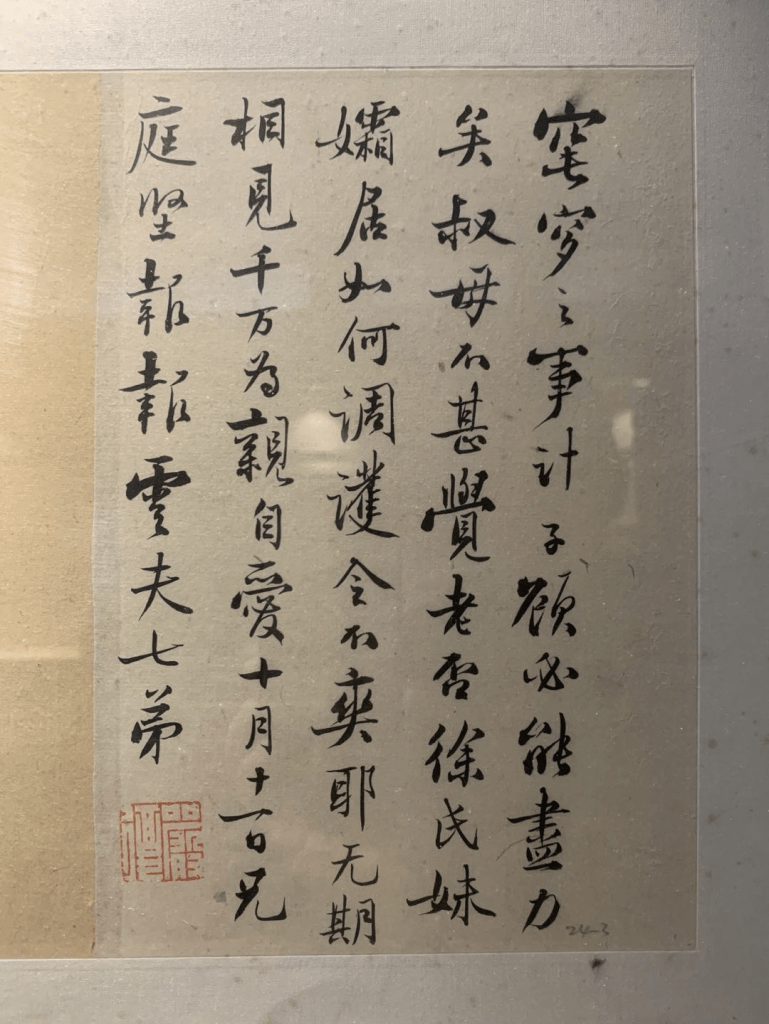 窀穸之事計子顧必能盡力
矣叔母不甚覺老否徐氏妹
孀居如何調護令不爽耶无期
相見千万為親自愛十月十一日兄
庭堅報報雲夫七弟
24-3